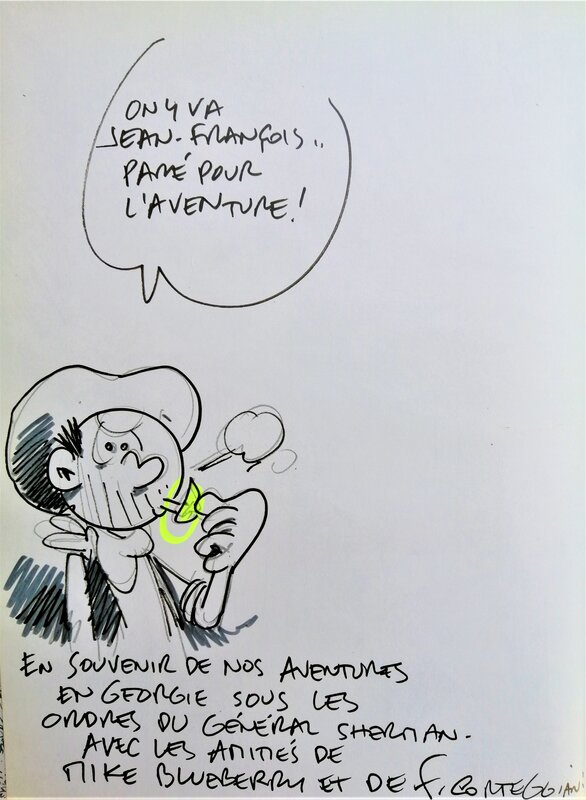 ON Y VA
JEAN-FRANÇOIS..
PARÉ POUR
L'AVENTURE!
EN SOUVENIR DE NOS AVENTURES
EN GEORGIE SOUS LES
ORDRES DU GÉNÉRAL SHERMAN.
AVEC LES AMITIÉS DE
MIKE BLUEBERRY ET DE F. CORTEGGIANI